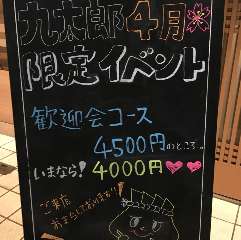 九太郎4月
限定イベント
歓迎会コース
4500円のところ…
いまなら!4000円
ご来店
おまちしております!